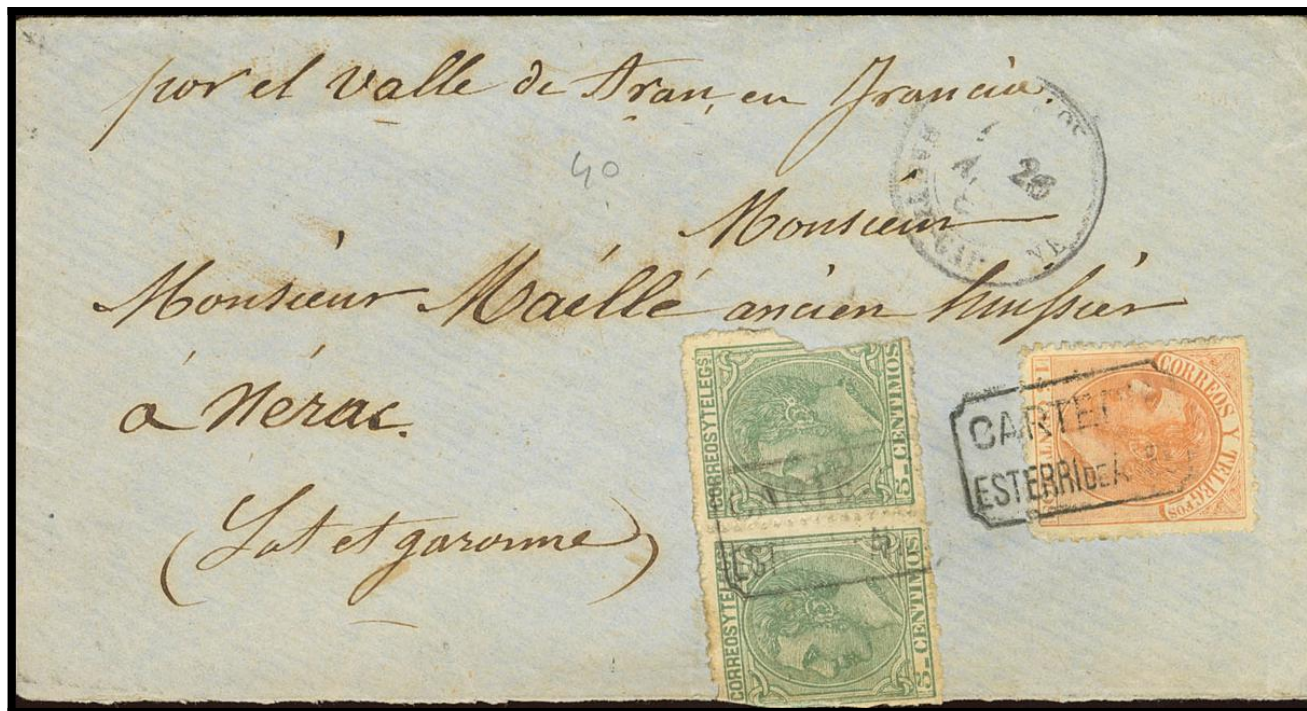 por el valle de Aran, en Francia.
40
Monsieur
Monsieur Maëllé ancien huissier
à Nérac.
(Lot et garonne)
28
NE
CORREOS Y TELEGS
5 CENTIMOS
CORREOS Y TELE
5 CENTIMOS
EST
CARTE
ESTERRI DE A
CORREOS Y TELRGFOS